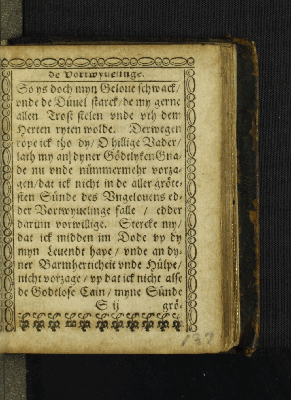 de Vortwyuelinge.
So ys doch myn Geloue schwack/
vnde de Düuel starck/ de my gerne
allen Trost stelen vnde vth dem
Herten ryten wolde. Derwegen
rope ick tho dy/ O hillige Vader/
lath my an dyner Gödtlyken Gna⸗
de nu vnde nümmermehr vorza⸗
gen/ dat ick nicht in de aller gröte⸗
sten Sünde des Vngelouens ed⸗
der Vortwyuelinge falle / edder
darüm vorwillige. Stercke my/
dat ick midden im Dode vp dy
myn Leuendt hape / vnde an dy⸗
ner Barmherticheit vnde Hülpe/
nicht vorzage / vp dat ick nicht alse
de Godtlose Cain / myne Sünde
S ij grö⸗
137